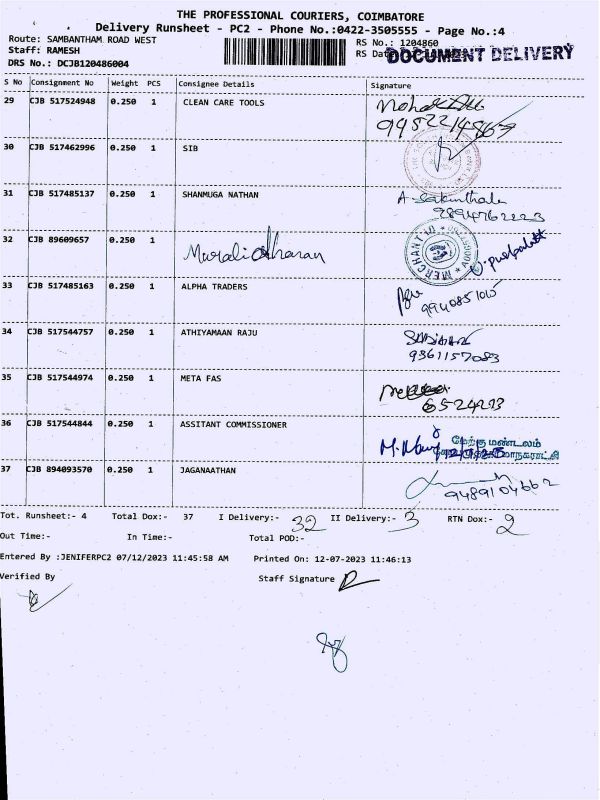 THE PROFESSIONAL COURIERS, COIMBATORE
Delivery Runsheet - PC2 - Phone No.:0422-3505555 - Page No.:4
Route: SAMBANTHAM ROAD WEST
RS No.: 1204860
Staff: RAMESH
RS Dat
DOCUMENT DELIVERY
DRS No.: DCJB120486004
S No Consignment No Weight PCS Consignee Details Signature
29 CJB 517524948 0.250 1 CLEAN CARE TOOLS
30 CJB 517462996 0.250 1 SIB
31 CJB 517485137 0.250 1 SHANMUGA NATHAN A. Sakunthala
9894762223
32 CJB 89609657 0.250 1 Muralidharan
MERCHANT
33 CJB 517485163 0.250 1 ALPHA TRADERS
9940851015
34 CJB 517544757 0.250 1 ATHIYAMAAN RAJU
9361157083
35 CJB 517544974 0.250 1 META FAS
6524273
36 CJB 517544844 0.250 1 ASSITANT COMMISSIONER
மண்டலம்
37 CJB 894093570 0.250 1 JAGANAATHAN
9489104662
Tot. Runsheet:- 4 Total Dox:- 37 I Delivery:- 32 II Delivery:- 3 RTN Dox:- 2
Out Time:- In Time:- Total POD:-
Entered By :JENIFERPC2 07/12/2023 11:45:58 AM Printed On: 12-07-2023 11:46:13
Verified By Staff Signature